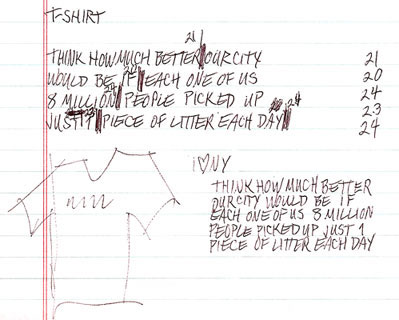 T-SHIRT
21
THINK HOW MUCH BETTER OUR CITY 21
WOULD BE IF EACH ONE OF US 20
8 MILLION PEOPLE PICKED UP 24 24
23
JUST 1 PIECE OF LITTER EACH DAY 24
i ♡ NY
THINK HOW MUCH BETTER
OUR CITY WOULD BE IF
EACH ONE OF US 8 MILLION
PEOPLE PICKED UP JUST 1
PIECE OF LITTER EACH DAY